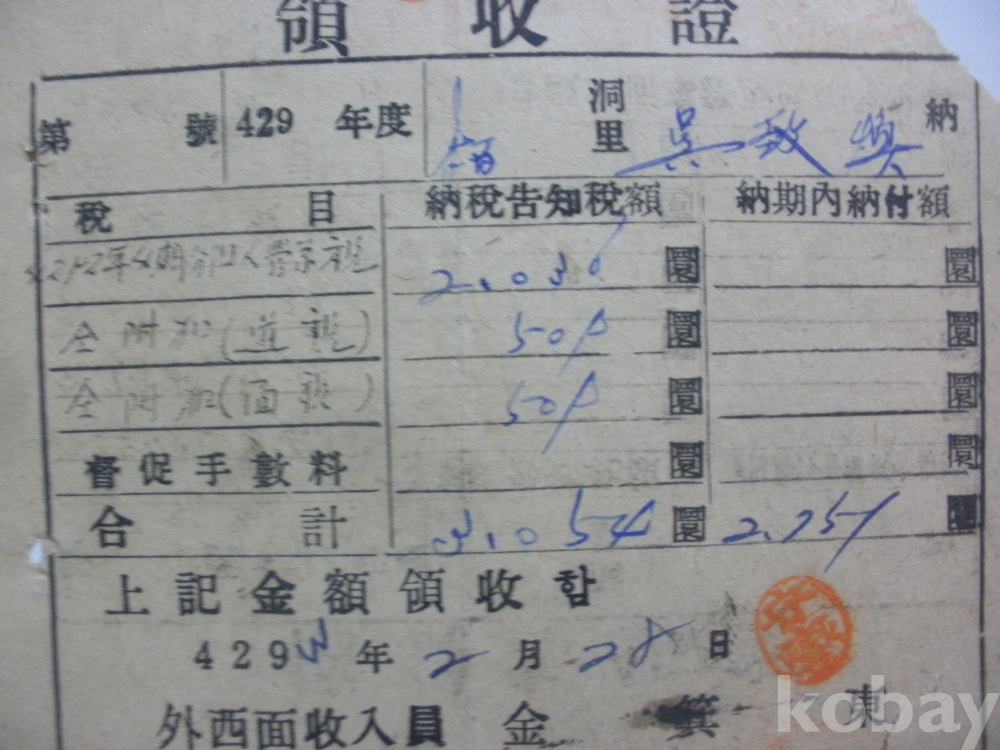 領收證
第 號 429 年度 洞里 吳致 納
稅目 納稅告知稅額 納期內納付額
年 個人營業稅 2.03 圜 圜
仝附加(道稅) 50 圜 圜
仝附加(面稅) 50 圜 圜
督促手數料 圜 圜
合計 3.054 圜 2.751 圜
上記金額領收함
429 年 2 月 28 日
外西面收入員 金 箕 東
kcbay